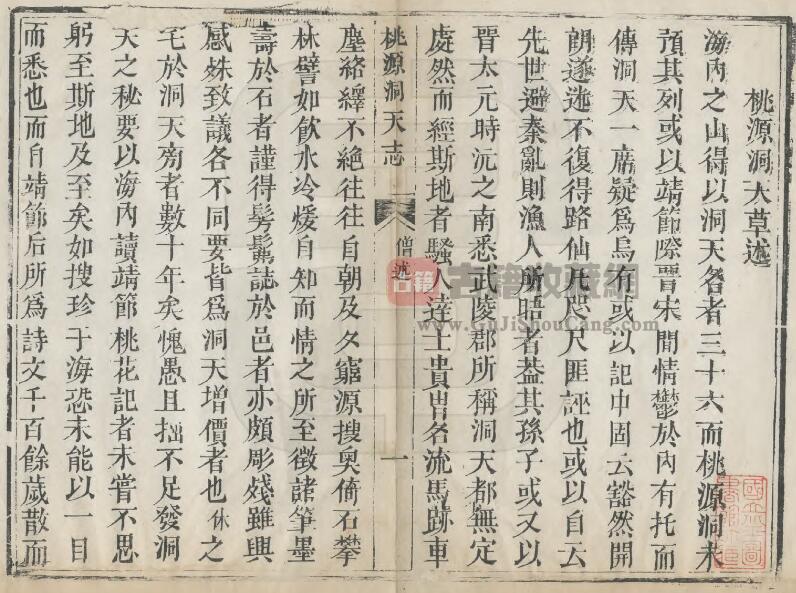 桃源洞天草述
海內之山得以洞天名者三十六而桃源洞未
預其列或以靖節際晉宋閒情鬱於內有托而
傳洞天一席疑爲烏有或以記中固云豁然開
朗遂迷不復得路仙凡咫尺匪誣也或以自云
先世避秦亂則漁人所晤者葢其孫子或又以
晉太元時沅之南悉武陵郡所稱洞天都無定
處然而經斯地者騷人達士貴胄名流馬跡車
桃源洞天志
僧述
一
塵絡繹不絕往往自朝及夕窮源搜奧倚石攀
林譬如飲水冷煖自知而情之所至徵諸筆墨
壽於石者謹得髣髴誌於邑者亦頗彫殘雖興
感殊致議各不同要皆爲洞天增價者也休之
宅於洞天旁者數十年矣愧愚且拙不足發洞
天之秘要以海內讀靖節桃花記者未嘗不思
躬至斯地及至矣如搜珍于海恐未能以一目
而悉也而自靖節后所爲詩文千百餘歲散而
古籍
古籍收藏網
www.GuJiShouCang.com